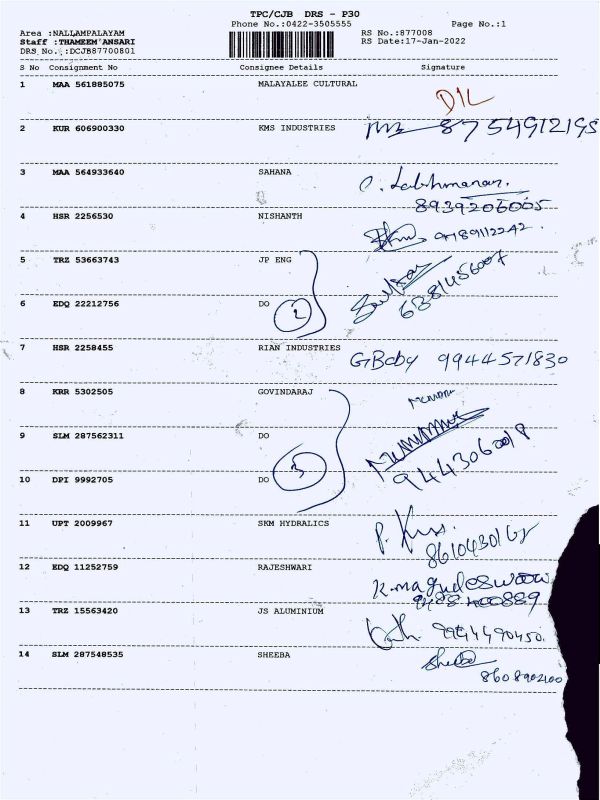 TPC/CJB DRS - P30
Phone No.:0422-3505555 Page No.:1
Area :NALLAMPALAYAM RS No.:877008
Staff :THAMEEM ANSARI RS Date:17-Jan-2022
DRS No.:DCJB87700801
S No Consignment No Consignee Details Signature
1 MAA 561885075 MALAYALEE CULTURAL
D/L
2 KUR 606900330 KMS INDUSTRIES 8754912195
3 MAA 564933640 SAHANA
8939206005
4 HSR 2256530 NISHANTH
5 TRZ 53663743 JP ENG
6381456007
6 EDQ 22212756 DO 2
7 HSR 2258455 RIAN INDUSTRIES
G Baby 9944571830
8 KRR 5302505 GOVINDARAJ
9 SLM 287562311 DO
10 DPI 9992705 DO 3
11 UPT 2009967 SKM HYDRALICS
12 EDQ 11252759 RAJESHWARI
9488400889
13 TRZ 15563420 JS ALUMINIUM
9944490450.
14 SLM 287548535 SHEEBA Sheeba
8608902100